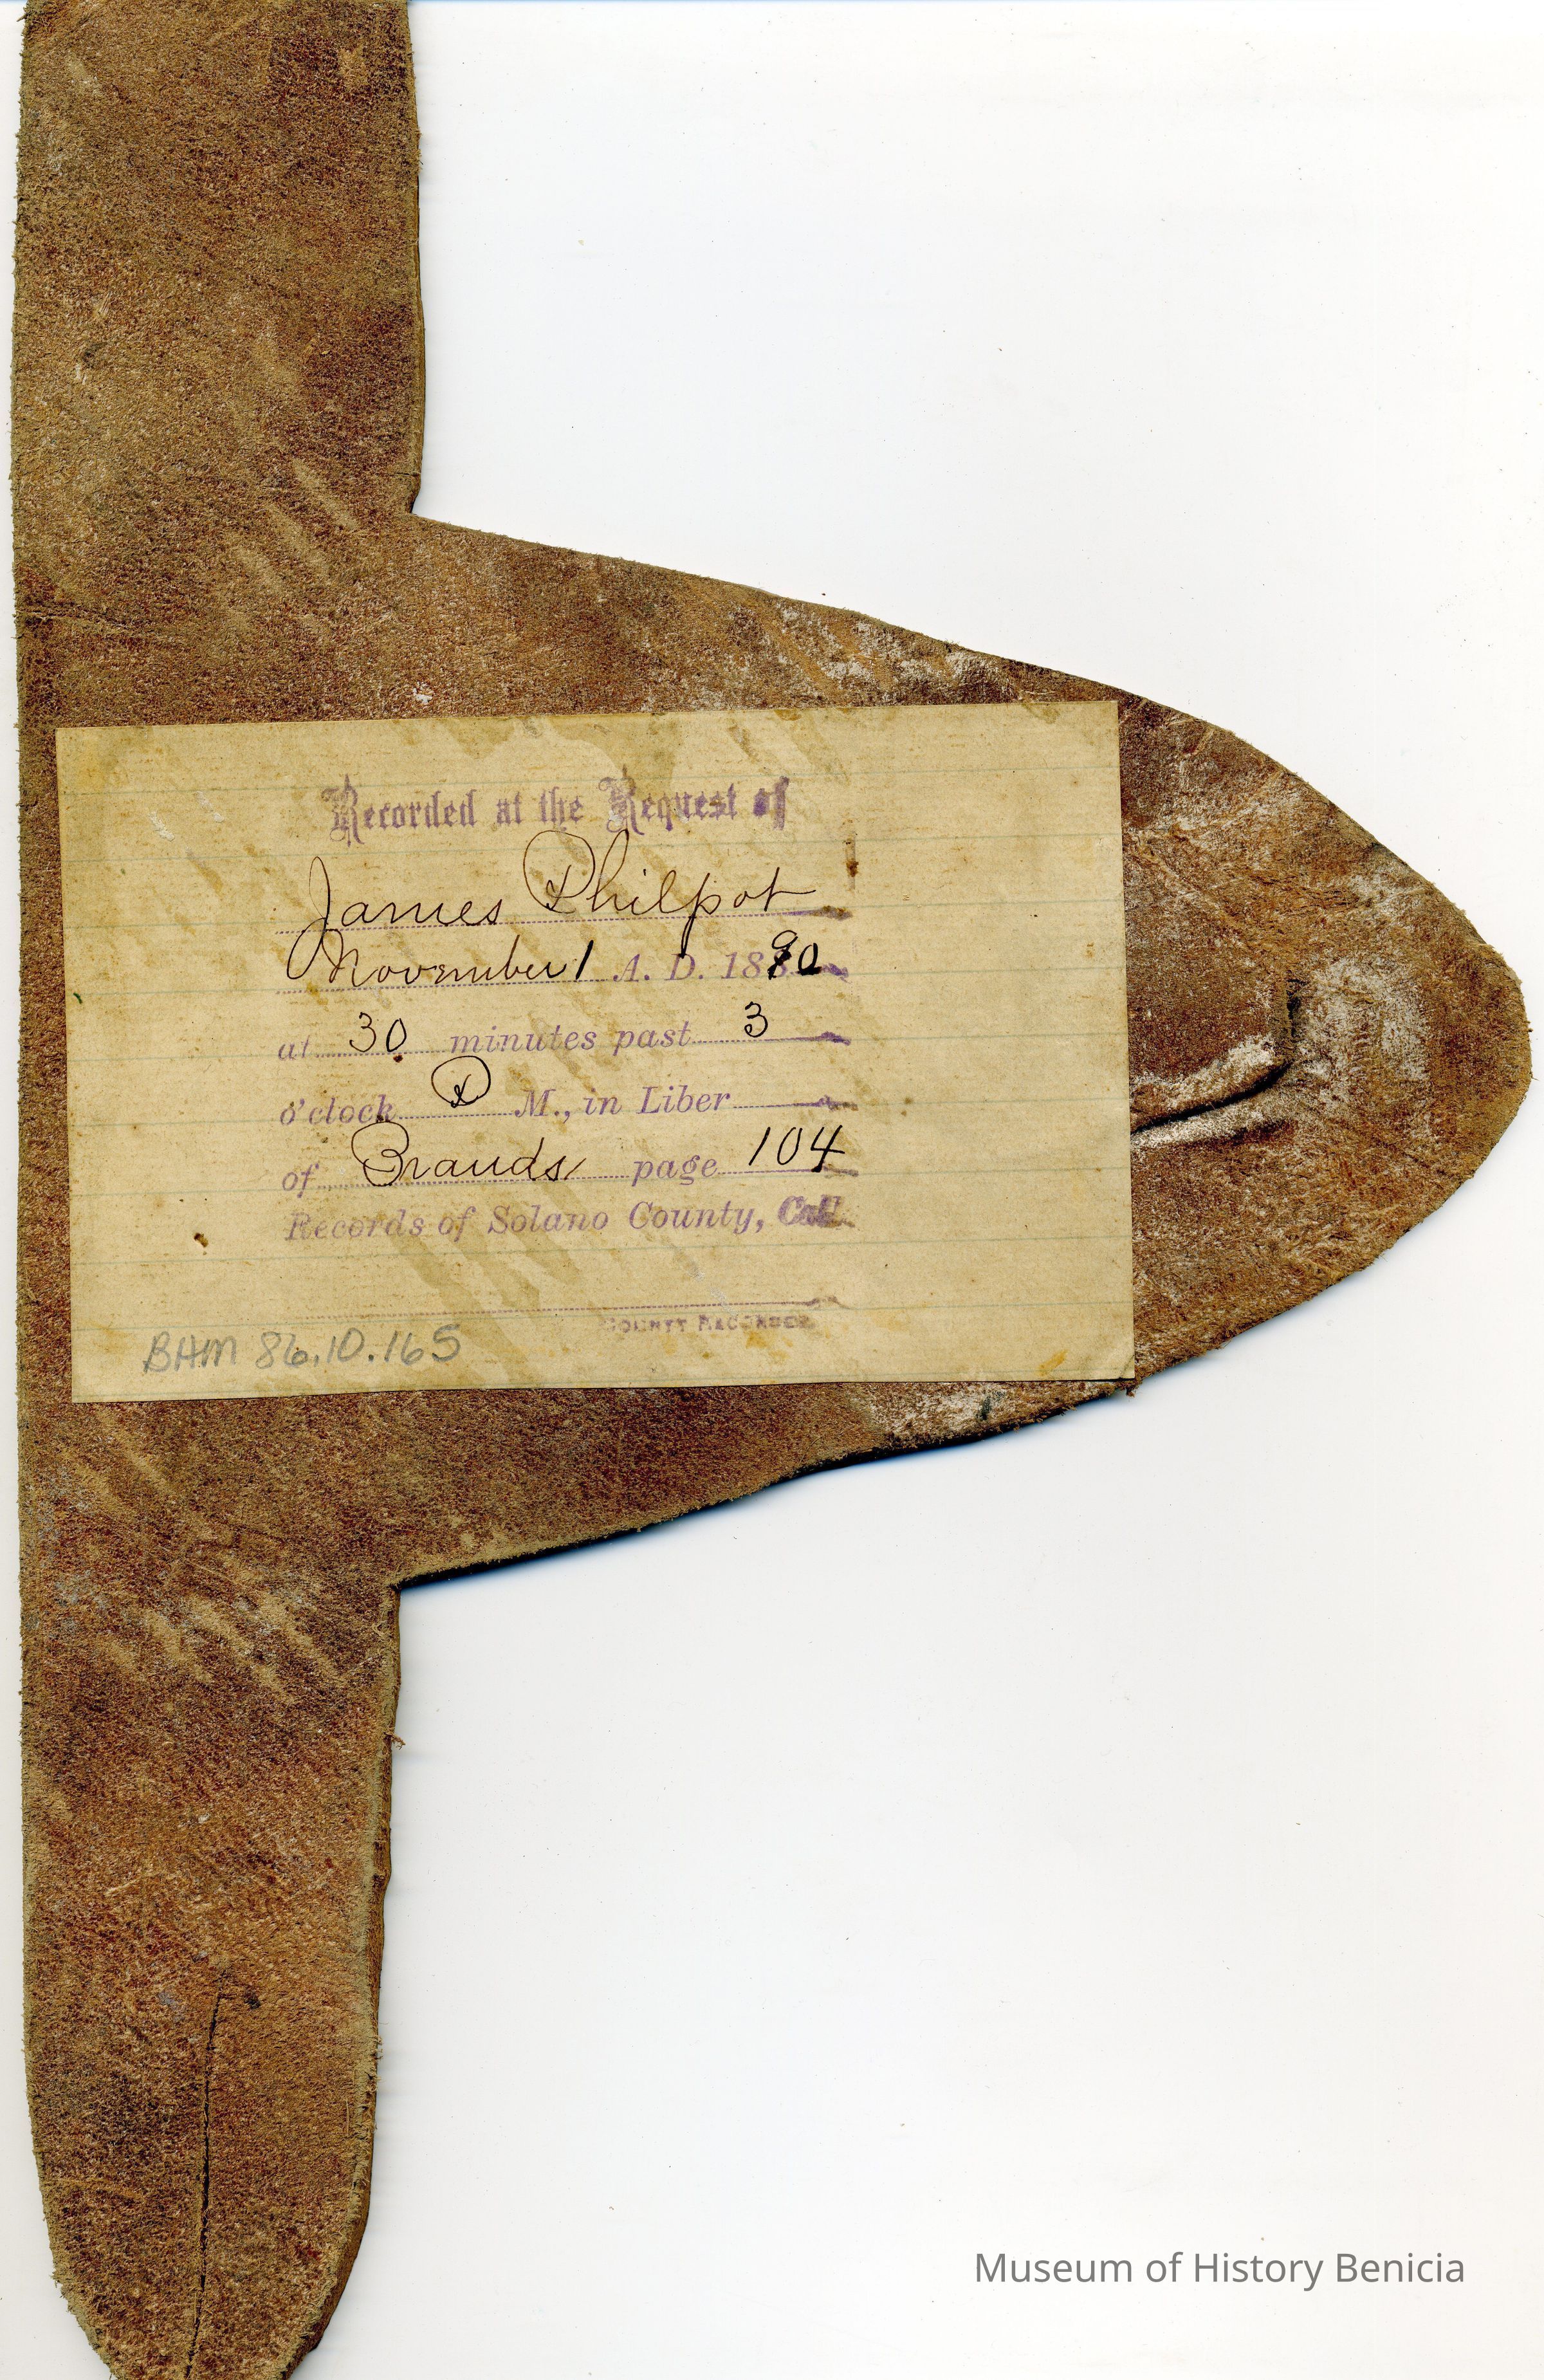 Recorded at the Request of
James Philpot
November 1 A. D. 1890
at 30 minutes past 3
o'clock P M., in Liber
of Brands page 104
Records of Solano County, Cal
COUNTY RECORDER
BHM 86.10.165
Museum of History Benicia